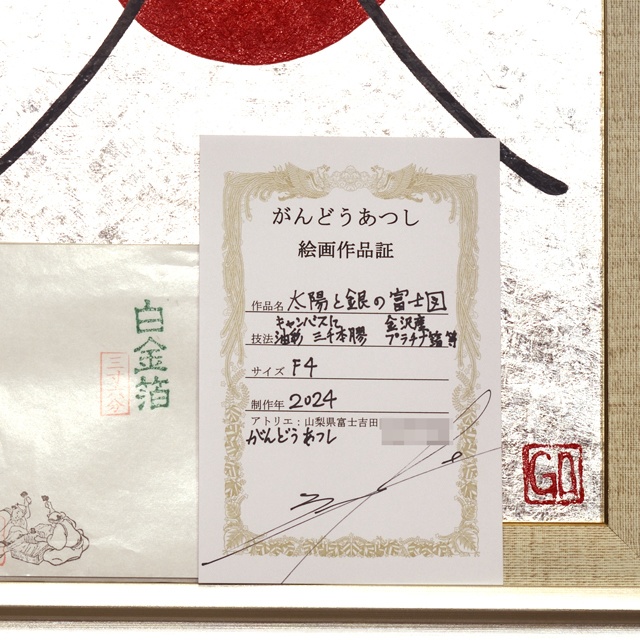 がんどうあつし
絵画作品証
作品名 太陽と銀の富士図
キャンバスに 金沢産
技法 油彩 三千本膠 プラチナ箔 等
サイズ F4
制作年 2024
アトリエ:山梨県富士吉田
がんどうあつし
白金箔
三寸六分
GD